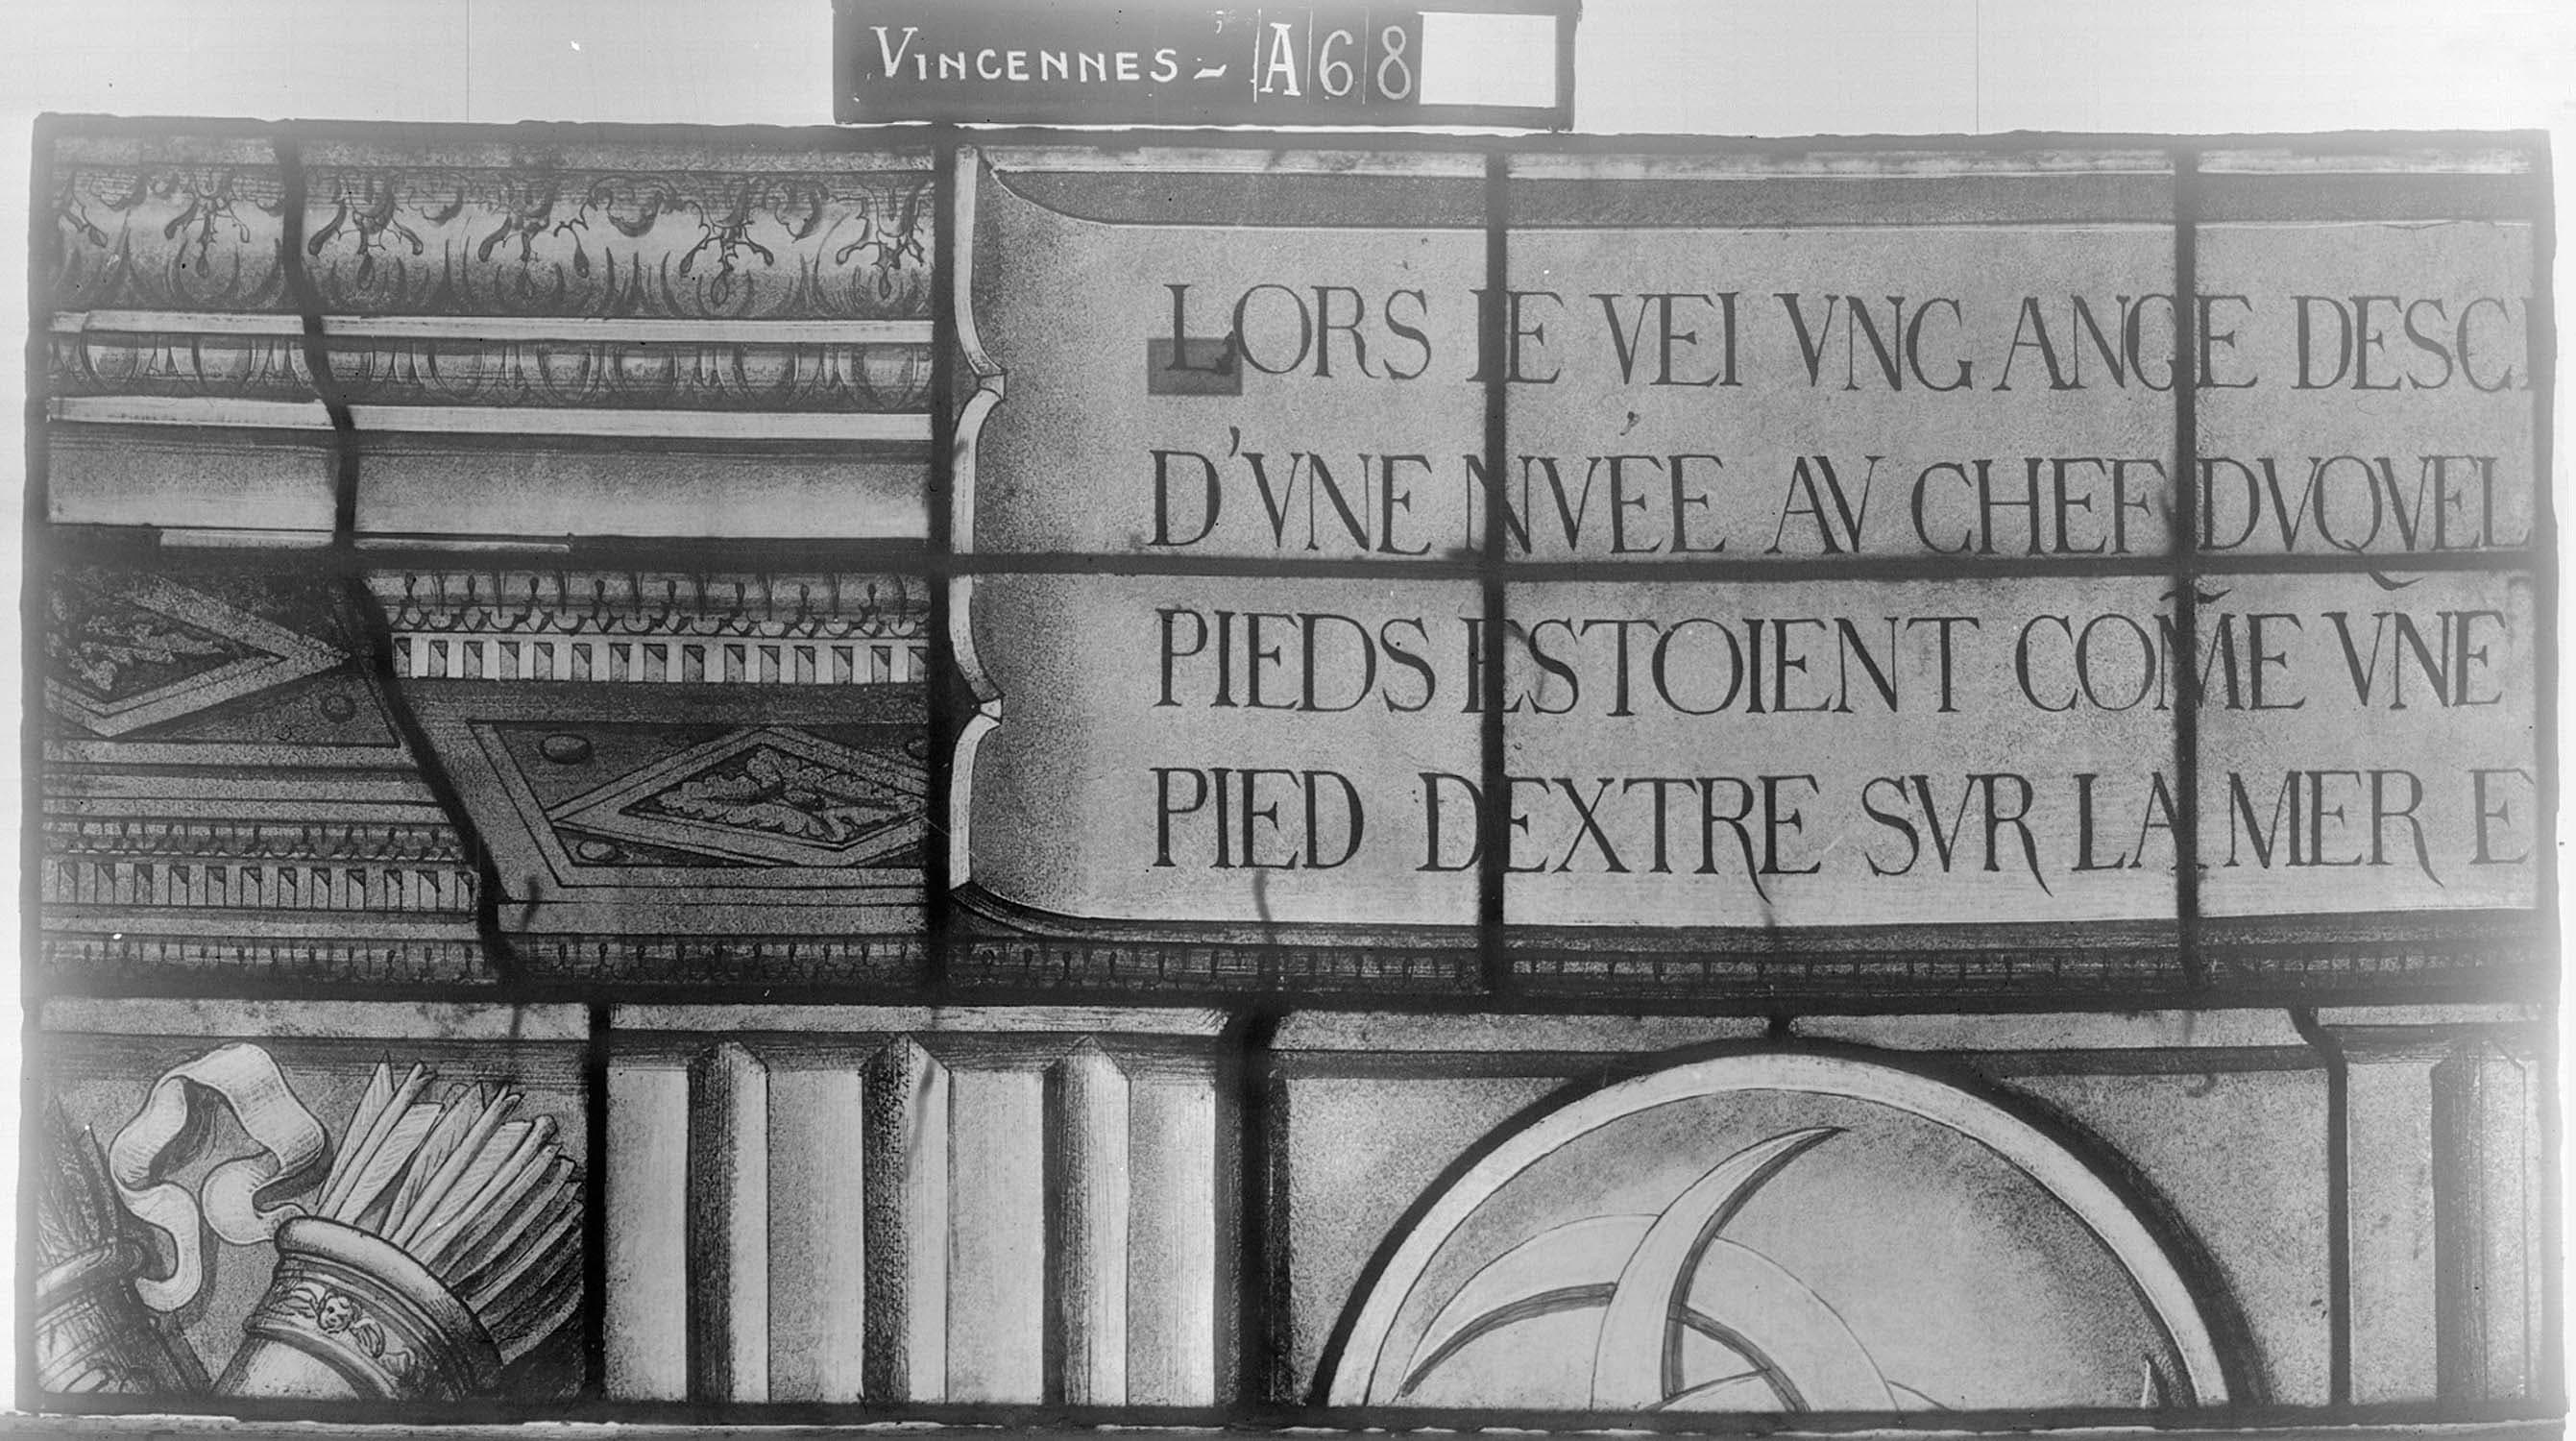 VINCENNES - A68
LORS IE VEI VNG ANGE DESCE
D'VNE NVÉE AV CHEF DVQVEL
PIEDS ESTOIENT COM̃E VNE
PIED DEXTRE SVR LA MER E